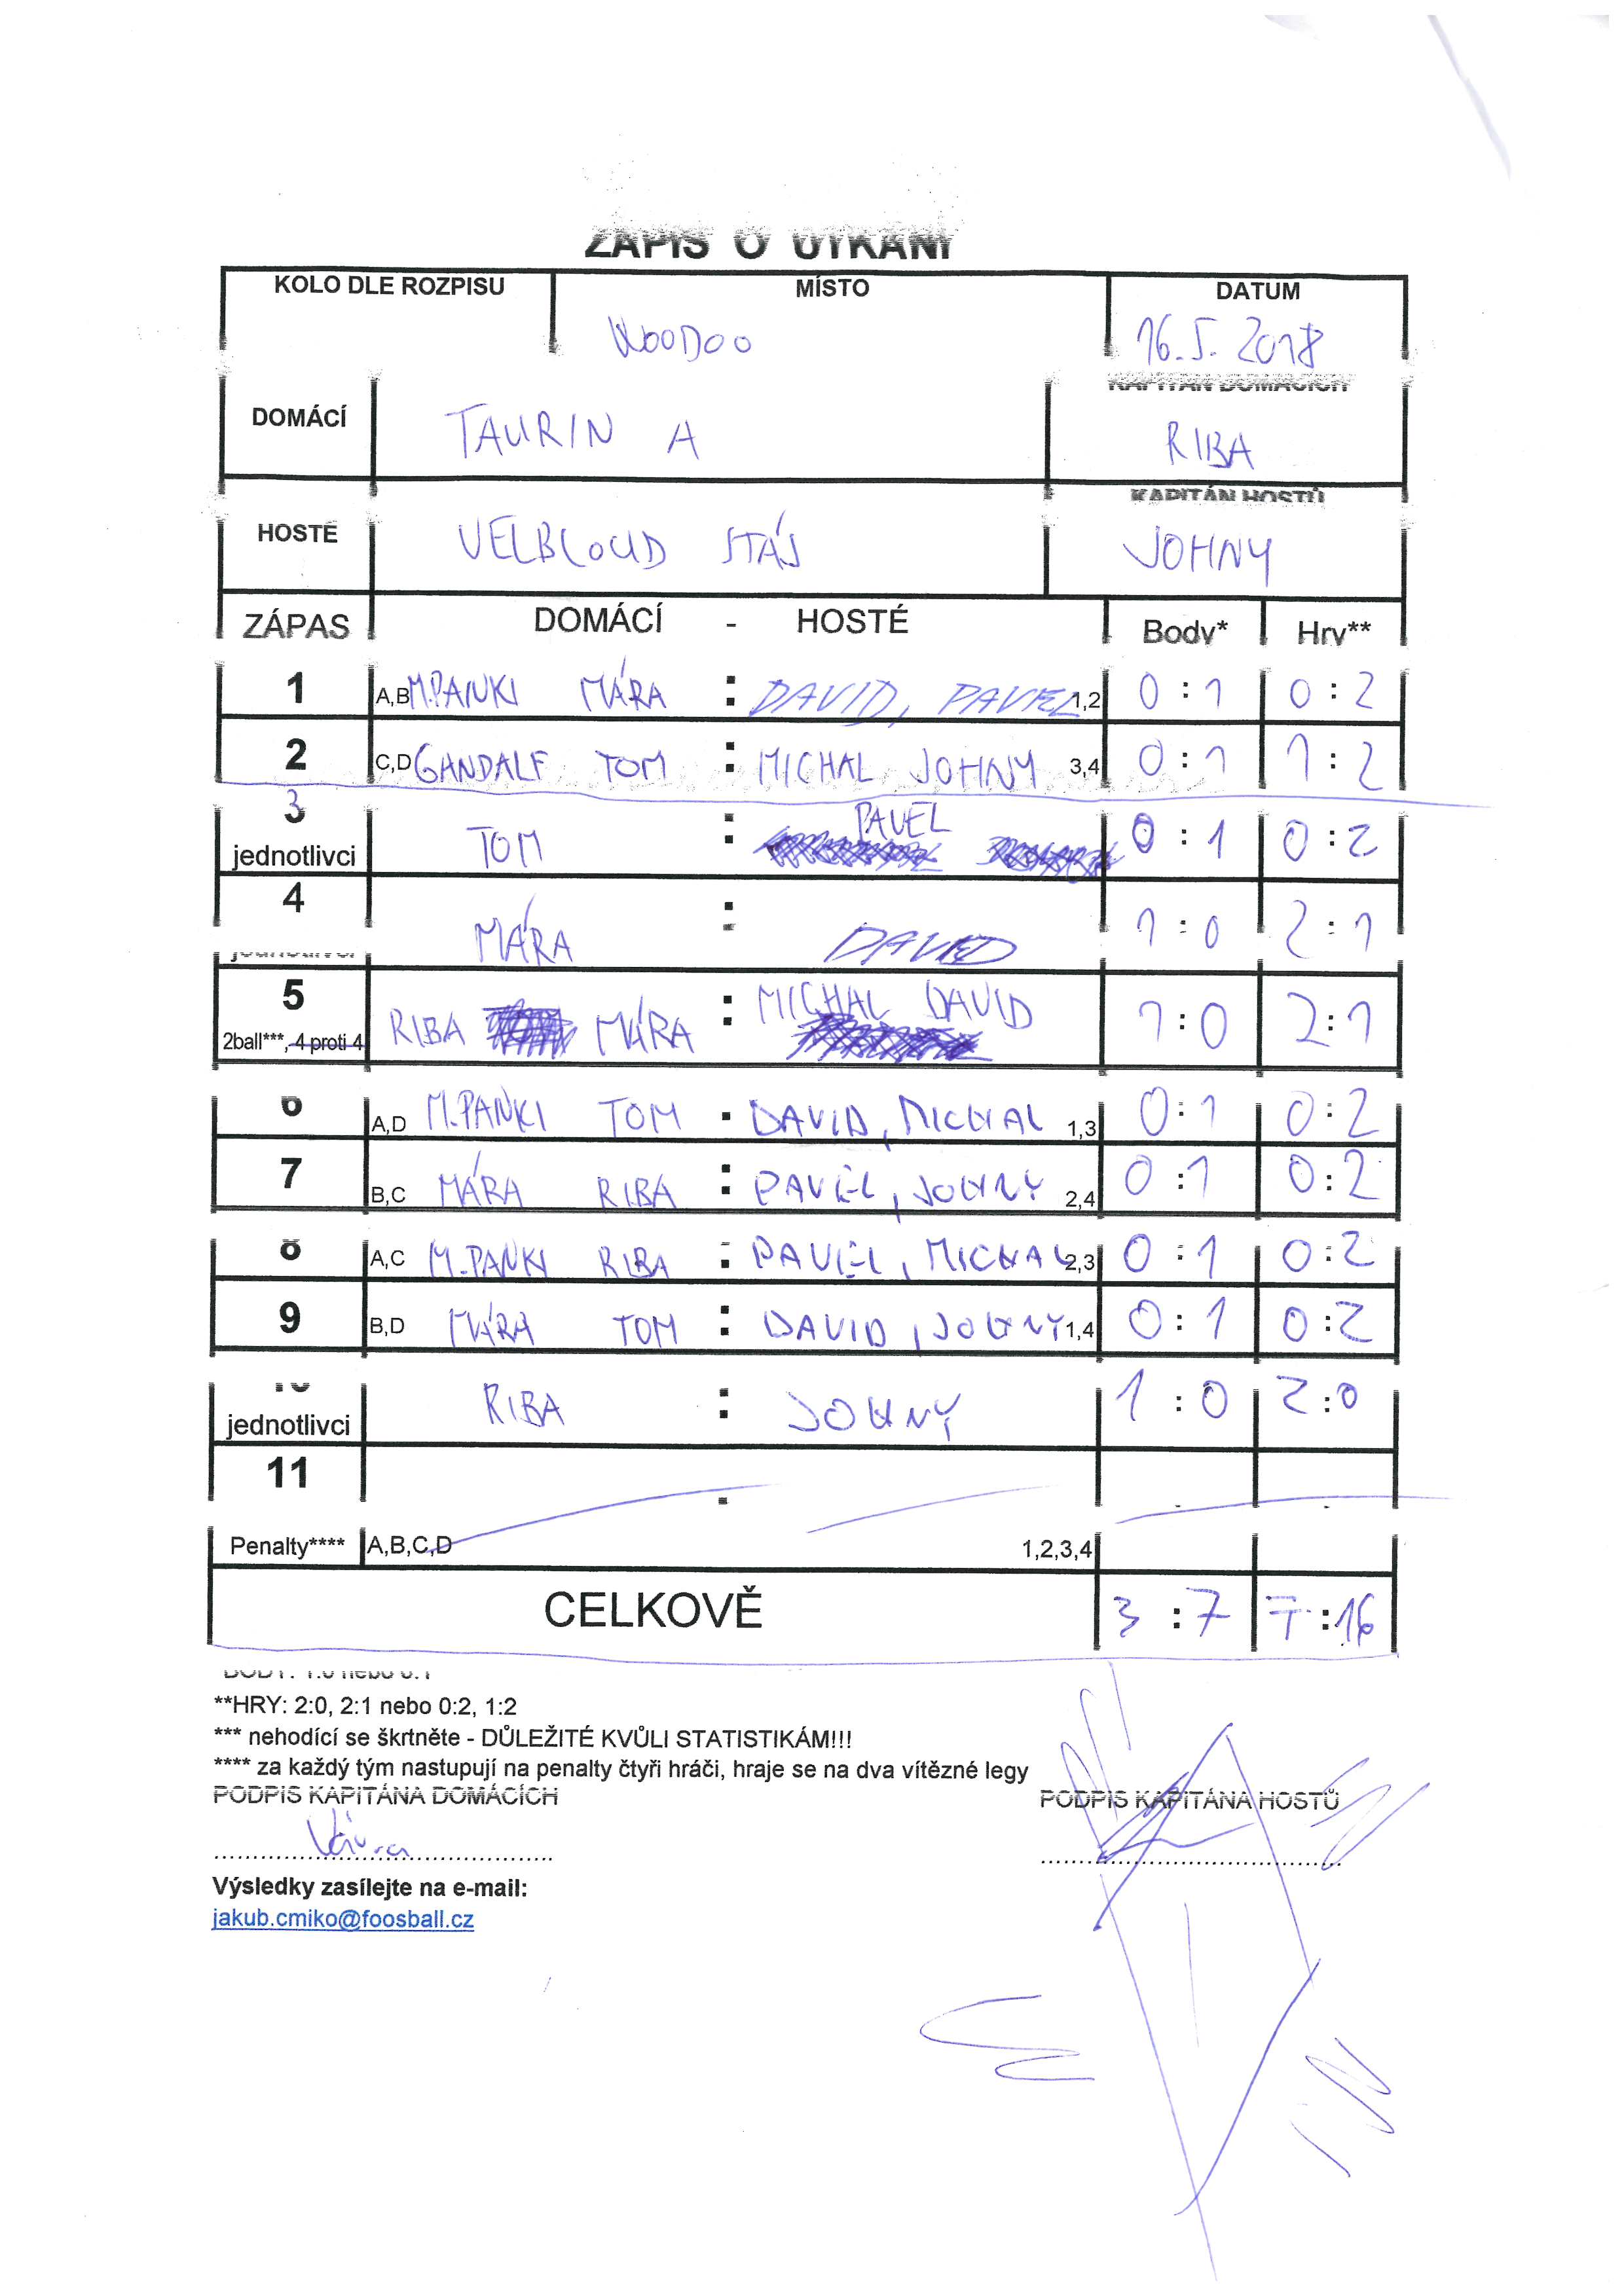 ZÁPIS O UTKÁNÍ
KOLO DLE ROZPISU MÍSTO DATUM
WOODOO 16.5. 2018
KAPITÁN DOMÁCÍCH
DOMÁCÍ TAURIN A RIBA
KAPITÁN HOSTŮ
HOSTÉ VELBLOUD STÁJ JOHNY
ZÁPAS DOMÁCÍ - HOSTÉ Body* Hry**
1 A,B M.PANKI MÁRA : DAVID, PAVEL 1,2 0:1 0:2
2 C,D GANDALF TOM : MICHAL JOHNY 3,4 0:1 1:2
3
jednotlivci TOM : PAVEL 0:1 0:2
4
jednotlivci MÁRA : DAVID 1:0 2:1
5
2ball***, 4 proti 4 RIBA MÁRA : MICHAL DAVID 1:0 2:1
6 A,D M.PANKI TOM : DAVID, MICHAL 1,3 0:1 0:2
7 B,C MÁRA RIBA : PAVEL, JOHNY 2,4 0:1 0:2
8 A,C M.PANKI RIBA : PAVEL, MICHAL 2,3 0:1 0:2
9 B,D MÁRA TOM : DAVID, JOHNY 1,4 0:1 0:2
10
jednotlivci RIBA : JOHNY 1:0 2:0
11
Penalty**** A,B,C,D 1,2,3,4
CELKOVĚ 3:7 7:16
*BODY: 1:0 nebo 0:1
**HRY: 2:0, 2:1 nebo 0:2, 1:2
*** nehodící se škrtněte - DŮLEŽITÉ KVŮLI STATISTIKÁM!!!
**** za každý tým nastupují na penalty čtyři hráči, hraje se na dva vítězné legy
PODPIS KAPITÁNA DOMÁCÍCH PODPIS KAPITÁNA HOSTŮ
Výsledky zasílejte na e-mail:
jakub.cmiko@foosball.cz